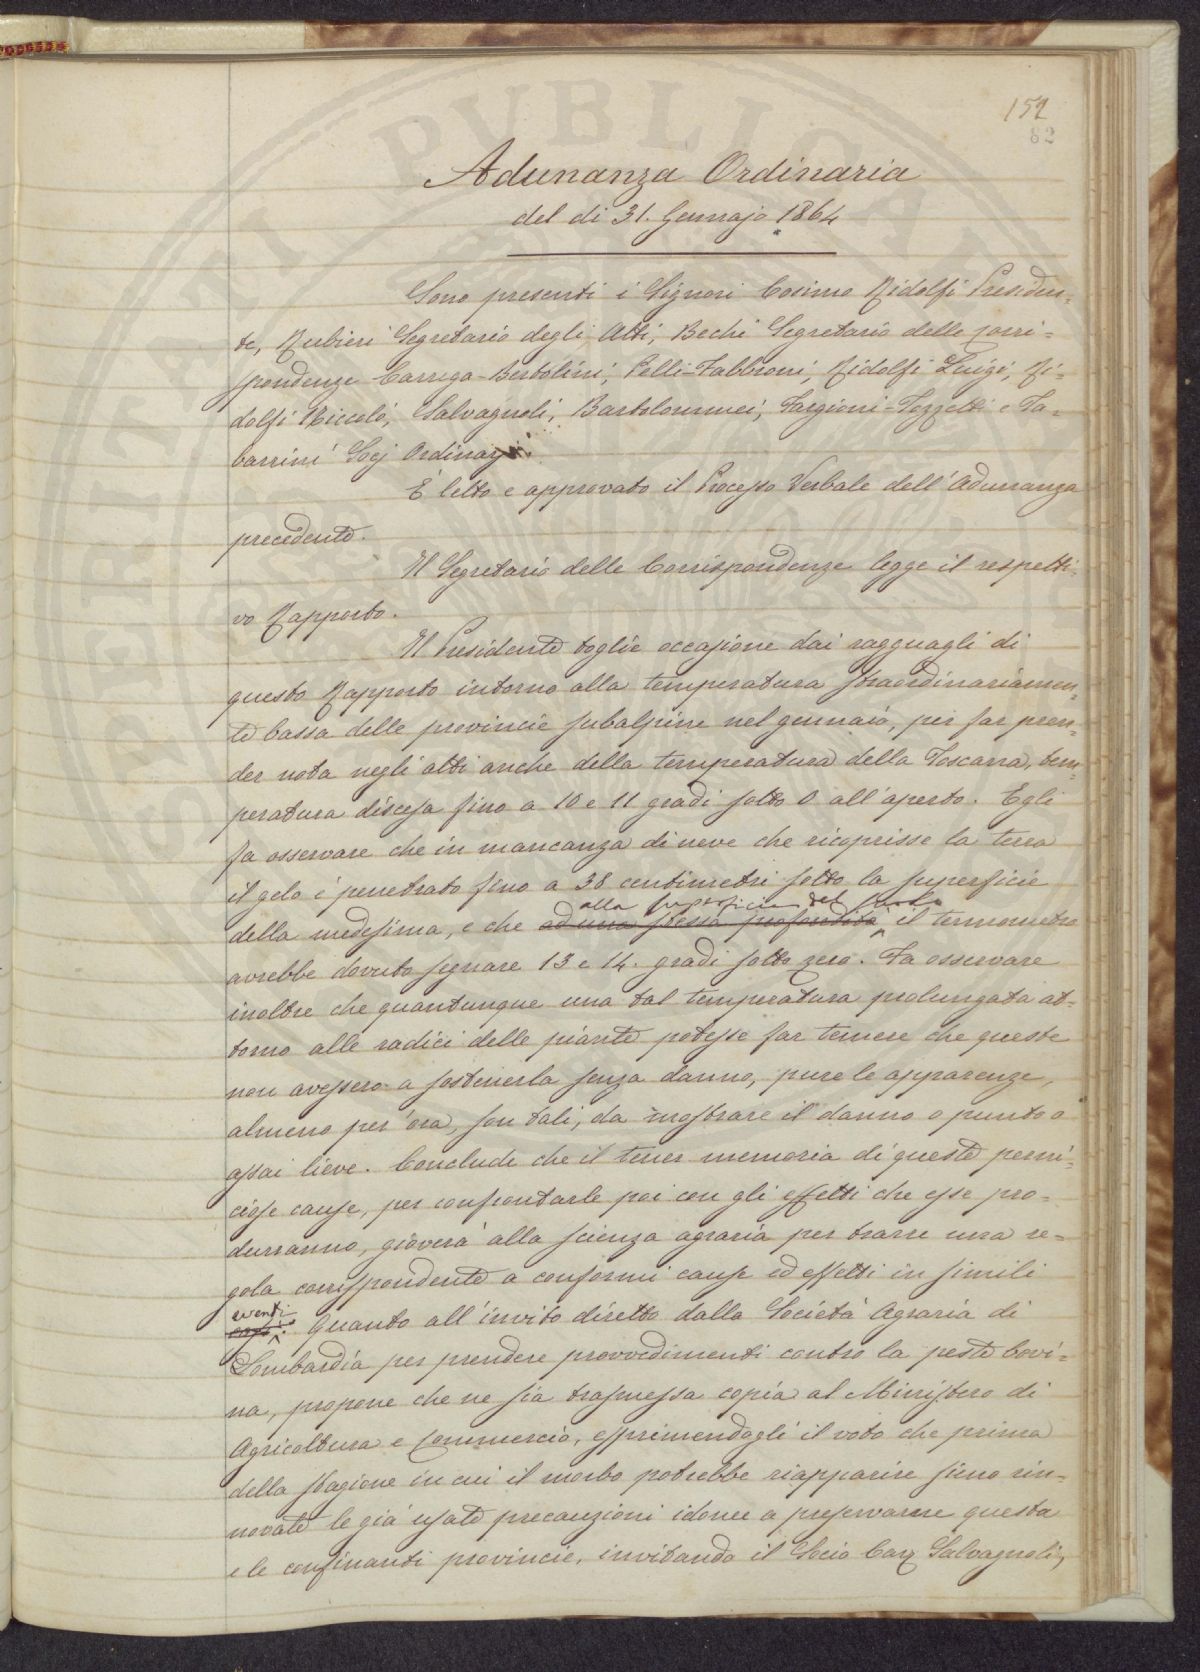 152
82
Adunanza Ordinaria
del di 31. Gennajo 1864
Sono presenti i Signori Cosimo Ridolfi Presiden=
te, Rubieri Segretario degli Atti, Bechi Segretario delle Corri=
spondenze Carrega-Bertolini, Pelli-Fabbroni, Ridolfi Luigi, Ri=
dolfi Niccolò, Salvagnoli, Bartolommei, Targioni-Tozzetti e Ta=
barrini Socj Ordinarj.
È letto e approvato il Processo Verbale dell'Adunanza
precedente.
Il Segretario delle Corrispondenze legge il respetti=
vo Rapporto.
Il Presidente toglie occasione dai ragguagli di
questo Rapporto intorno alla temperatura straordinariamen=
te bassa delle provincie subalpine nel gennaio, per far pren=
der nota negli atti anche della temperatura della Toscana, tem=
peratura discesa fino a 10 e 11 gradi sotto 0 all'aperto. Egli
fa osservare che in mancanza di neve che ricoprisse la terra
il gelo è penetrato fino a 38 centimetri sotto la superficie
alla superficie del suolo
della medesima, e che ad una stessa profondità il termometro
avrebbe dovuto segnare 13 e 14. gradi sotto zero. Fa osservare
inoltre che quantunque una tal temperatura prolungata at=
torno alle radici delle piante potesse far temere che queste
non avessero a sostenerla senza danno, pure le apparenze,
almeno per ora, son tali, da mostrare il danno o punto o
assai lieve. Conclude che il tener memoria di queste perni=
ciose cause, per confrontarle poi con gli effetti che esse pro=
durranno, gioverà alla scienza agraria per trarre una re=
gola corrispondente a conformi cause ed effetti in simili
eventi
casi. Quanto all'invito diretto dalla Società Agraria di
Lombardia per prendere provvedimenti contro la peste bovi=
na, propone che ne sia trasmessa copia al Ministero di
Agricoltura e Commercio, esprimendogli il voto che prima
della stagione in cui il morbo potrebbe riapparire sieno rin=
novate le già usate precauzioni idonee a preservarne questa
e le confinanti provincie, invitando il Socio Cav. Salvagnoli,